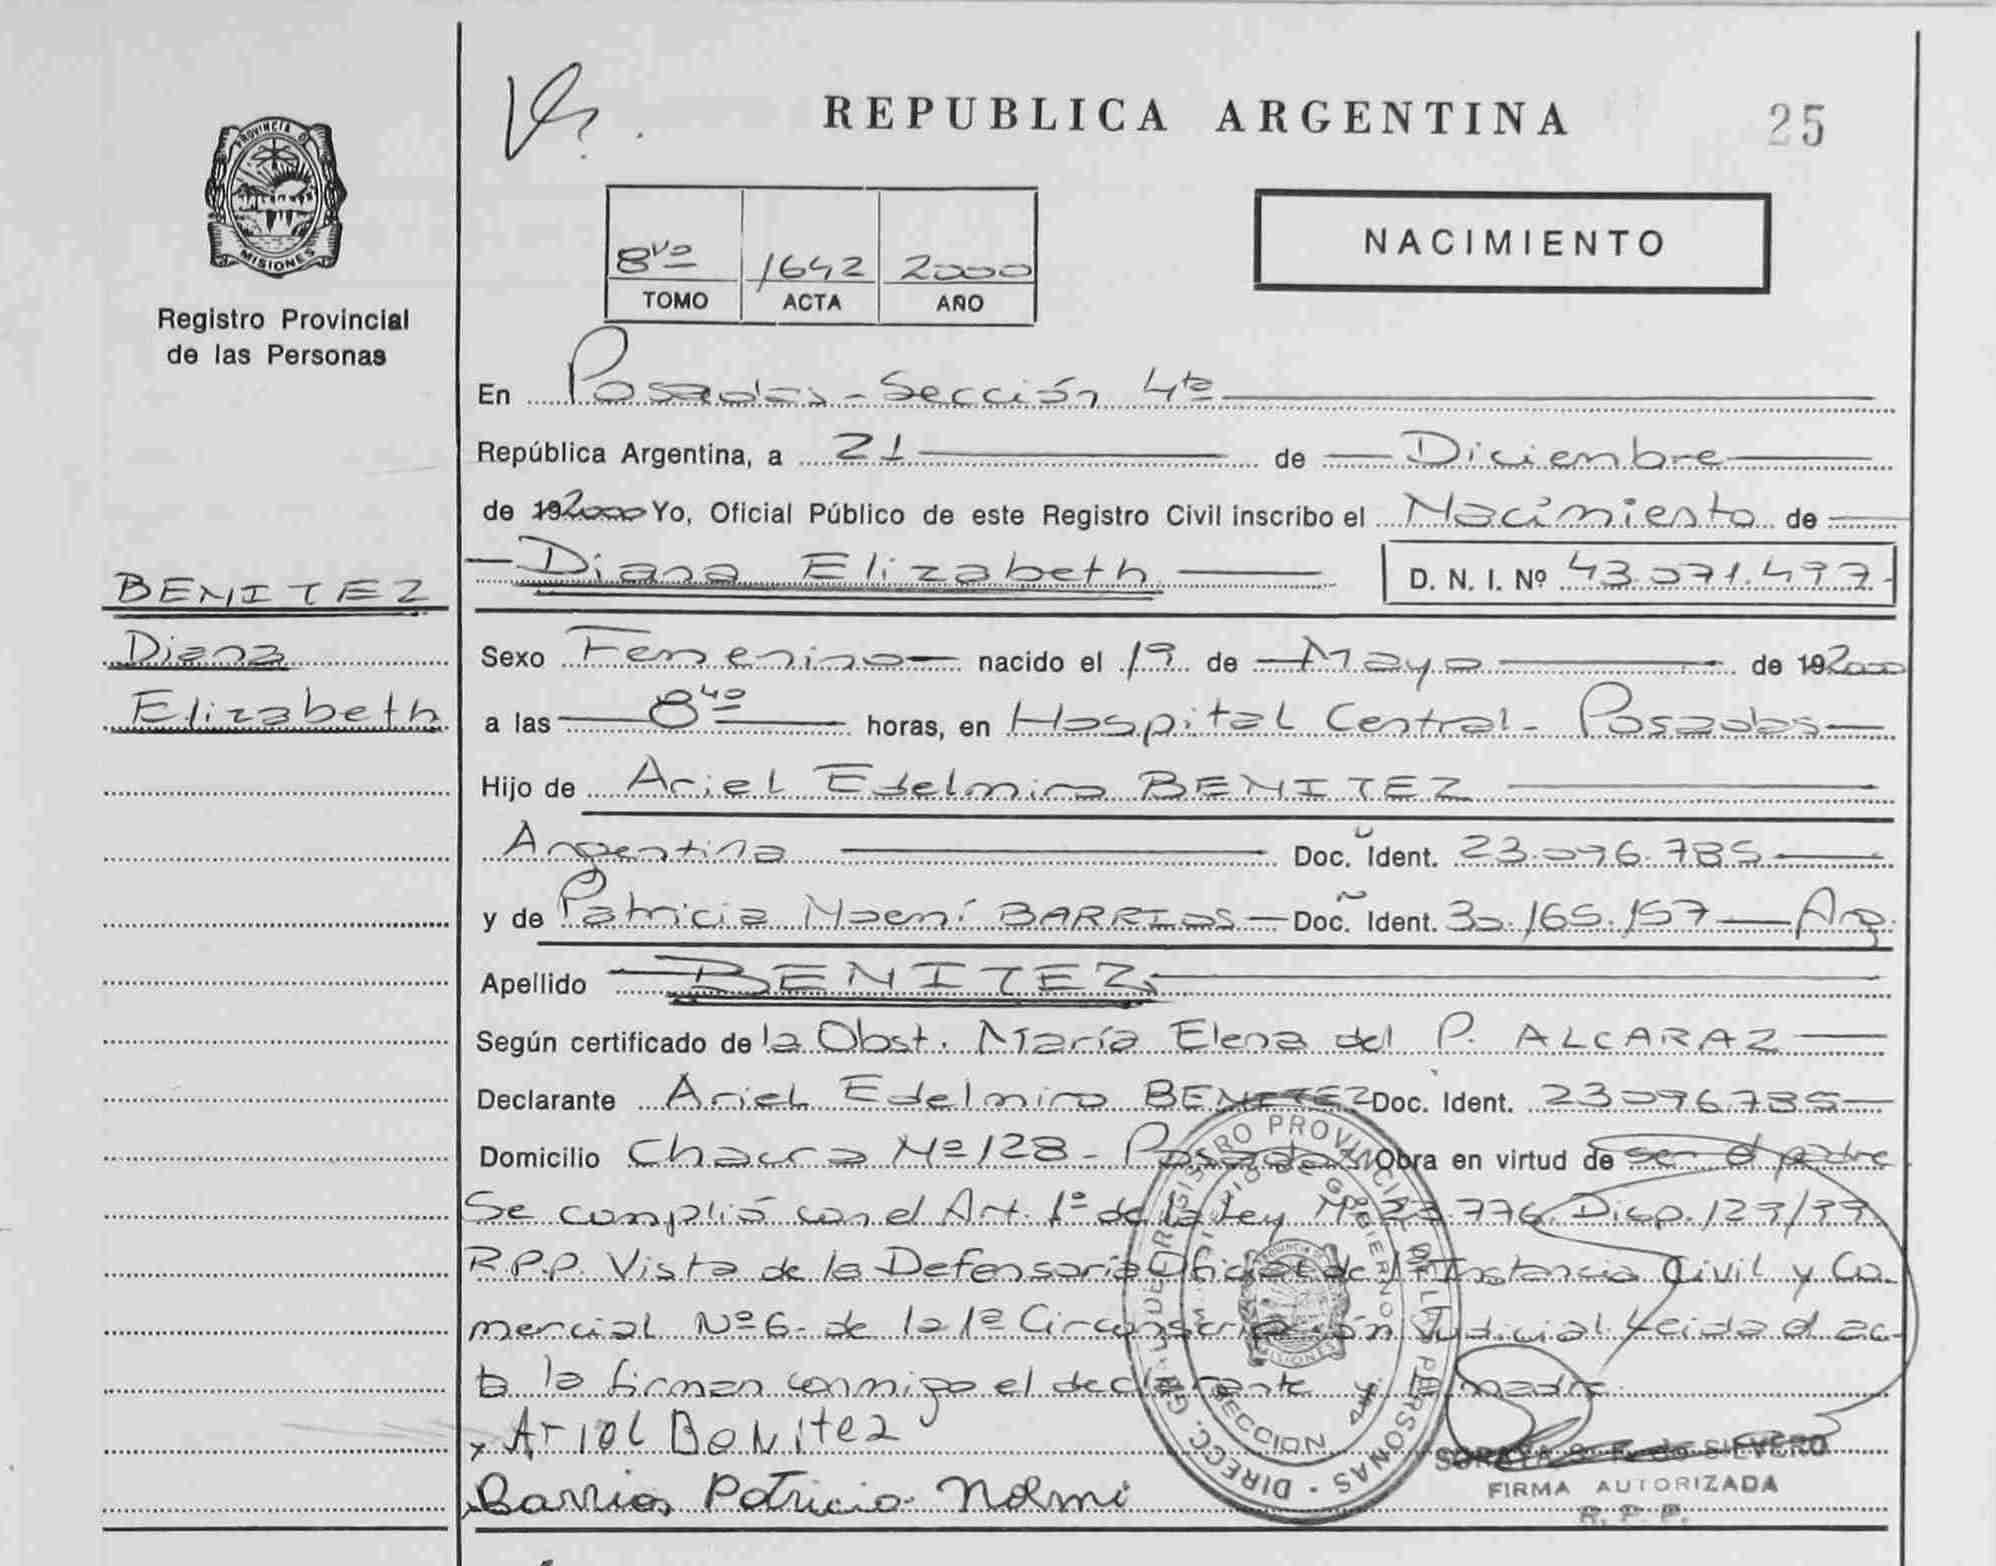 REPUBLICA ARGENTINA
25
PROVINCIA DE
MISIONES
Registro Provincial
de las Personas
8vo 1642 2000
TOMO ACTA AÑO
NACIMIENTO
En Posadas - Sección 4ta
República Argentina, a 21 de Diciembre
de 192000 Yo, Oficial Público de este Registro Civil inscribo el Nacimiento de
Diana Elizabeth D. N. I. Nº
BENITEZ
Diana
Elizabeth
Sexo Femenino nacido el 19 de Mayo de 192000
a las 8 40 horas, en Hospital Central - Posadas
Hijo de Ariel Edelmiro BENITEZ
Argentina Doc. Ident. 23.096.785
y de Patricia Noemí BARRIOS Doc. Ident. 30.165.157 Arg.
Apellido BENITEZ
Según certificado de la Obst. María Elena del P. ALCARAZ
Declarante Ariel Edelmiro BENITEZ Doc. Ident. 23096.785
Domicilio Chacra Nº 128 - Posadas Obra en virtud de ser el padre
Se cumplió con el Art. 1º de la Ley Nº 23.776. Disp.
R.P.P. Vista de la Defensoría Oficial de 1ª Instancia Civil y Co-
mercial Nº 6 - de la 1ª Circunscripción Judicial. Leida el ac-
ta la firman conmigo el declarante y la madre.
Ariel Benitez
Barrios Patricia Noemi
DIRECC. GRAL. DE REGISTRO PROVINCIAL DE LAS PERSONAS
MINISTERIO DE GOBIERNO
SECCION 4ta
PROVINCIA DE
MISIONES
SORAYA S. F. de SILVERO
FIRMA AUTORIZADA
R. P. P.